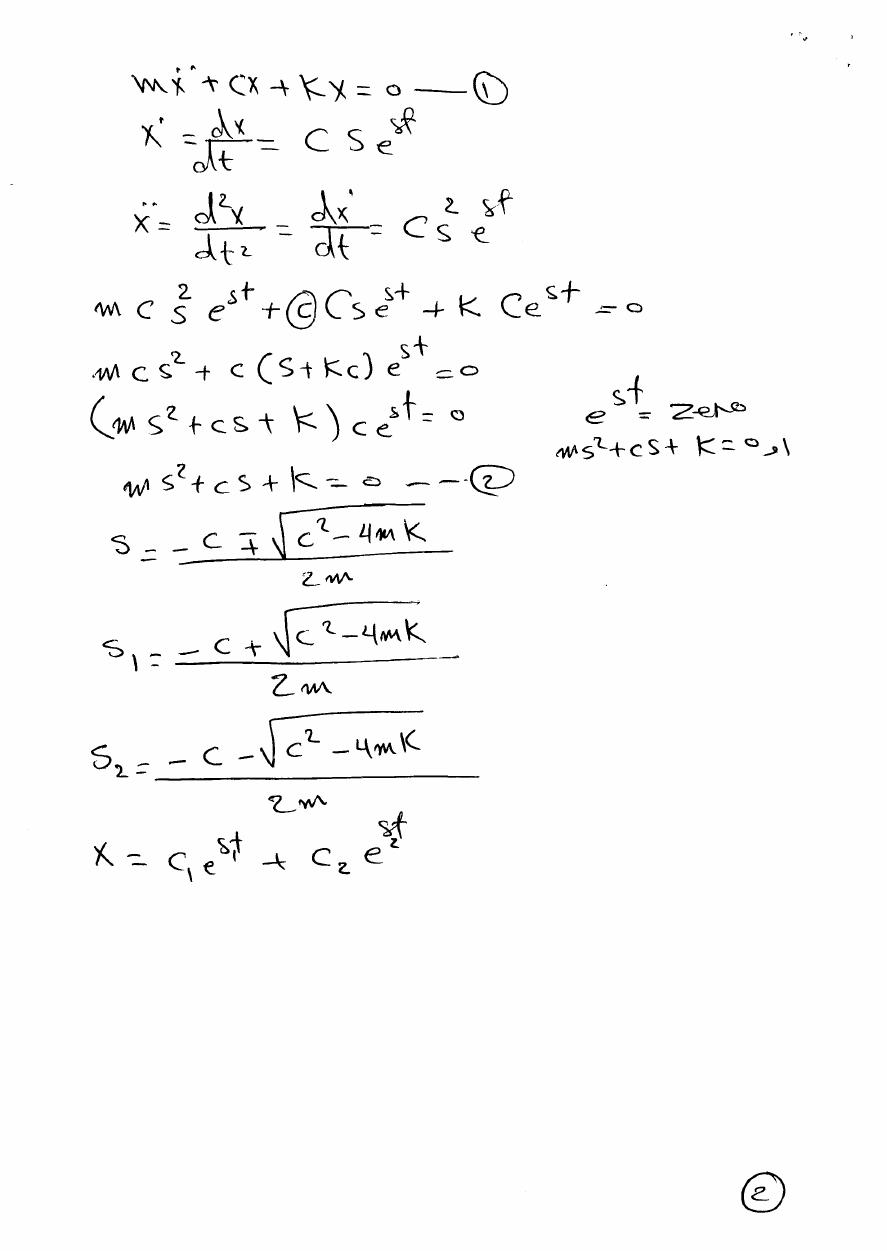 mẍ + cẋ + Kx = 0 —— ①
ẋ = dx/dt = C S e^st
ẍ = d²x/dt² = dẋ/dt = C s² e^st
m c s² e^st + ⓒ C s e^st + K C e^st = 0
m c s² + c (S + Kc) e^st = 0
(m s² + cs + K) c e^st = 0
e^st = Zero
m s² + cs + K = 0 --- ②
ms² + cs + K = 0 او
S = (-c ∓ √(c² - 4mK)) / 2m
S₁ = (-c + √(c² - 4mK)) / 2m
S₂ = (-c - √(c² - 4mK)) / 2m
X = C₁ e^s₁t + C₂ e^s₂t
②